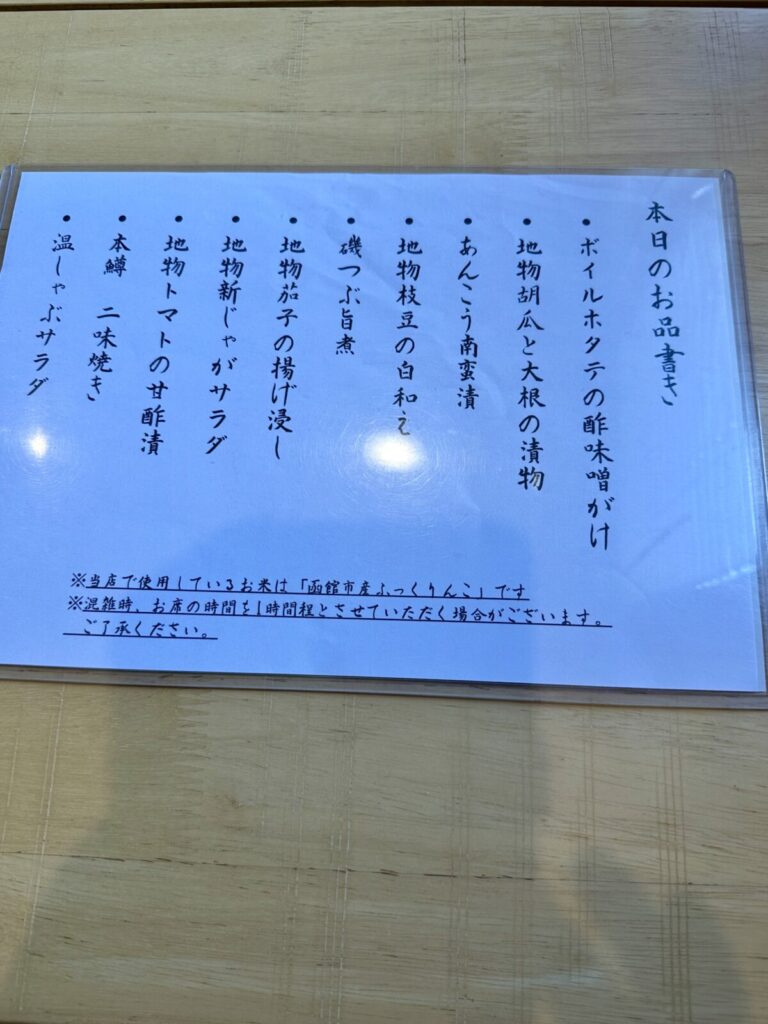 本日のお品書き
・ボイルホタテの酢味噌がけ
・地物胡瓜と大根の漬物
・あんこう南蛮漬
・地物枝豆の白和え
・磯つぶ旨煮
・地物茄子の揚げ浸し
・地物新じゃがサラダ
・地物トマトの甘酢漬
・本鱒 二味焼き
・温しゃぶサラダ
※当店で使用しているお米は「函館市産ふっくりんこ」です
※混雑時、お席の時間を1時間程とさせていただく場合がございます。
ご了承ください。